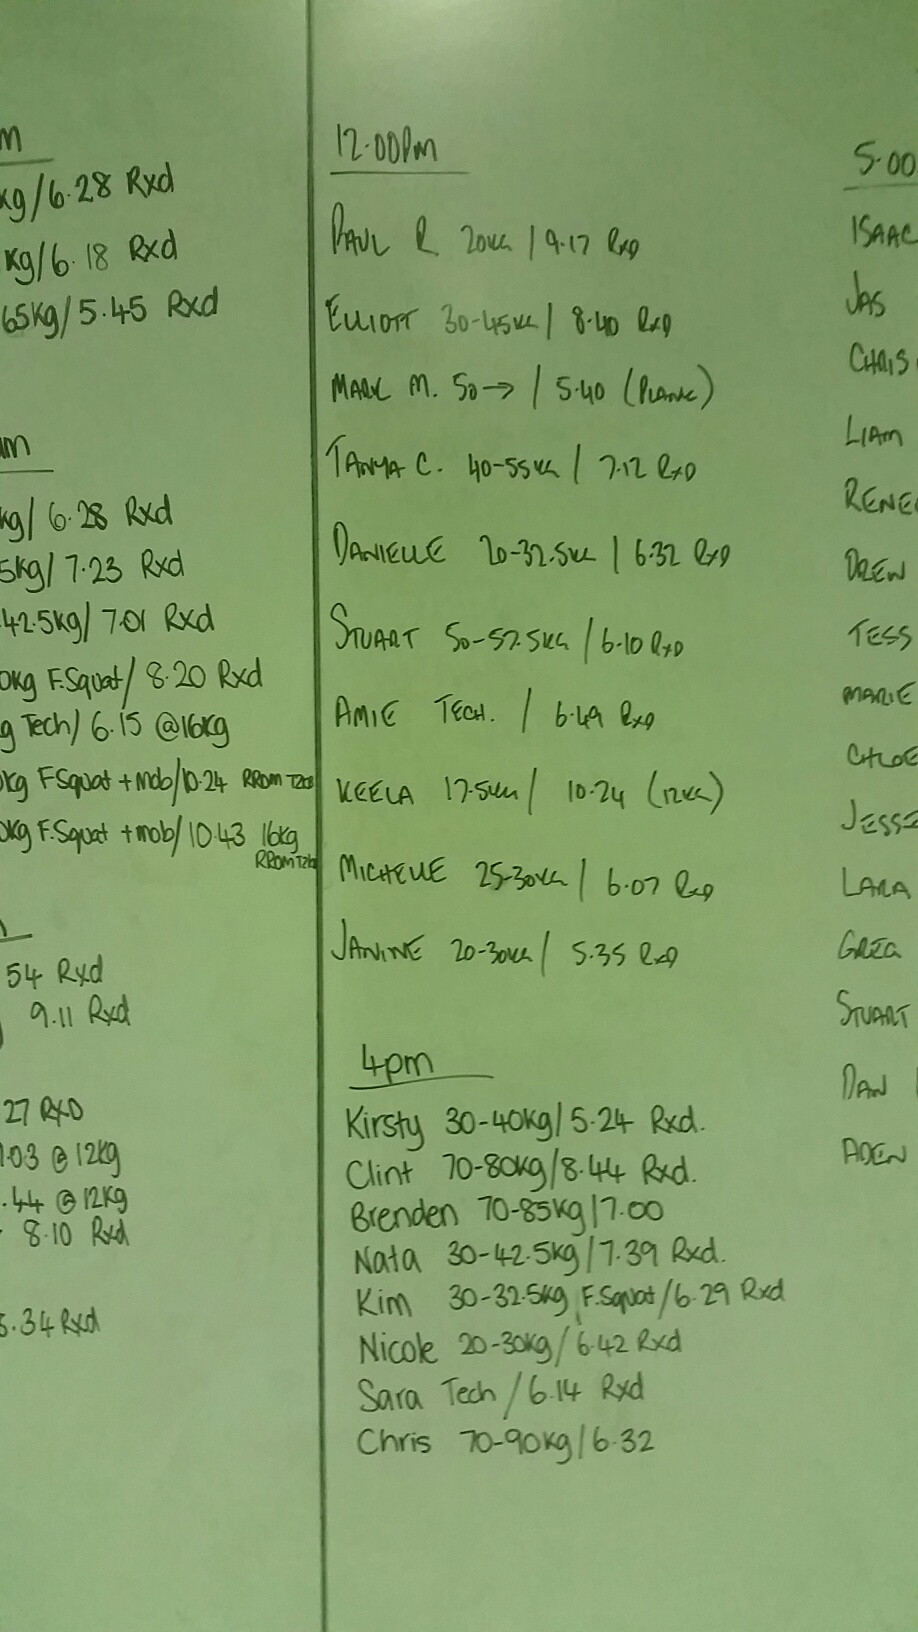 m
kg/6.28 Rxd
kg/6.18 Rxd
65kg/5.45 Rxd
am
kg/ 6.28 Rxd
5kg/ 7.23 Rxd
42.5kg/ 7.01 Rxd
0kg F.Squat/ 8.20 Rxd
g Tech/ 6.15 @16kg
0kg F.Squat + mob/10.24 RROM T2B
0kg F.Squat + mob/10.43 16kg
RROM T2B
54 Rxd
9.11 Rxd
27 RXD
.03 @ 12kg
.44 @ 12kg
8.10 Rxd
.34 Rxd
12.00Pm
PAUL R 20KG / 9.17 RXD
ELLIOTT 30-45KG / 8.40 RXD
MARK M. 50→ / 5.40 (PLANK)
TANYA C. 40-55KG / 7.12 RXD
DANIELLE 20-32.5KG / 6.32 RXD
STUART 50-57.5KG / 6.10 RXD
AMIE TECH. / 6.49 RXD
KEELA 17.5KG / 10.24 (12KG)
MICHELLE 25-30KG / 6.07 RXD
JANINE 20-30KG / 5.35 RXD
4pm
Kirsty 30-40kg/5.24 Rxd.
Clint 70-80kg/8.44 Rxd.
Brenden 70-85kg/7.00
Nata 30-42.5kg/7.39 Rxd.
Kim 30-32.5kg F.Squat/6.29 Rxd
Nicole 20-30kg/6.42 Rxd
Sara Tech /6.14 Rxd
Chris 70-90kg/6.32
5.00
ISAAC
JAS
CHRIS
LIAM
RENE
DREW
TESS
MARIE
CHLOE
JESS
LARA
GREG
STUART
DAN
ADEN